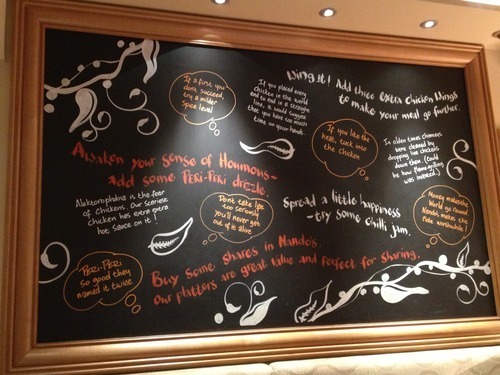 If a first you
don't succeed,
try a milder
spice level
If you placed every
chicken in the world
end to end in a straight
line, it would suggest
that you have too much
time on your hands.
Wing it! Add three extra Chicken Wings
to make your meal go further.
If you like the
heat, tuck into
the chicken
In olden times chimneys
were cleaned by
dropping live chickens
down them. (Could
be how flame-grilling
was invented.)
Awaken your sense of Houmous -
add some PERi-PERi drizzle.
Alektorophobia is the fear
of chickens. Our scariest
chicken has extra extra
hot sauce on it!
Don't take life
too seriously
you'll never get
out of it alive
Spread a little happiness
- try some chilli jam.
Money makes the
World go round
Nando's makes the
ride worthwhile!
PERi-PERi
So good they
named it twice
Buy some shares in Nando's.
Our platters are great value and perfect for sharing.